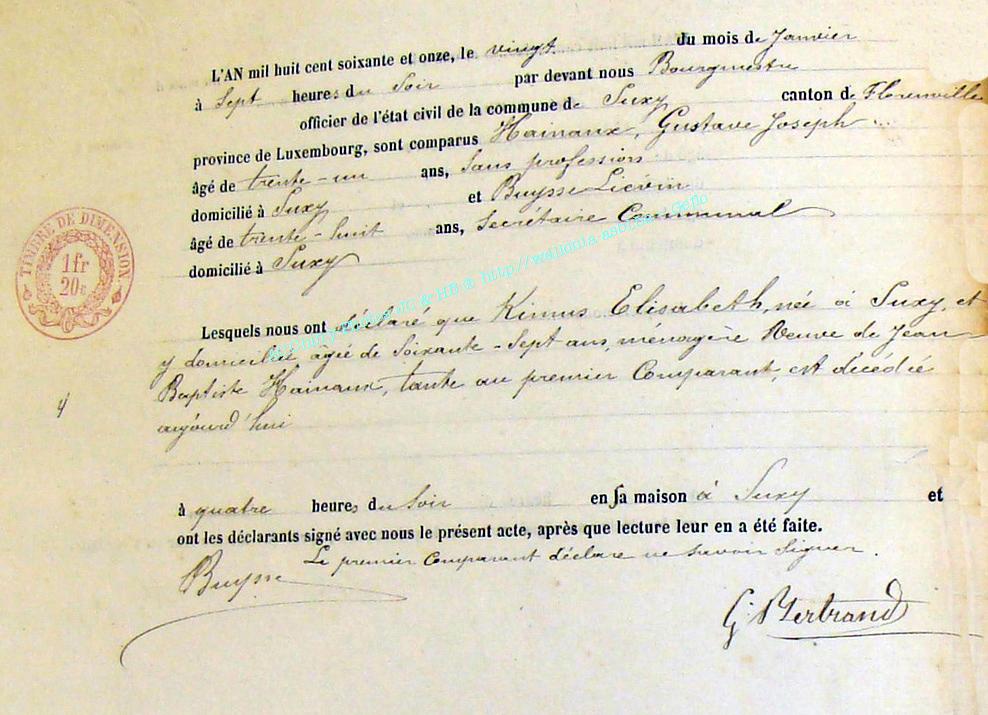 L'AN mil huit cent soixante et onze, le vingt du mois de Janvier
à Sept heures du Soir par devant nous Bourgmestre
officier de l'état civil de la commune de Suxy canton de Florenville
province de Luxembourg, sont comparus Hainaux, Gustave Joseph
âgé de trente-un ans, Sans profession
domicilié à Suxy et Buysse Liévin
âgé de trente-huit ans, Secrétaire Communal
domicilié à Suxy
TIMBRE DE DIMENSION
1fr
20c
Lesquels nous ont déclaré que Elisabeth, née à Suxy, et
y domiciliée agée de Soixante-Sept ans, ménagère Veuve de Jean
Baptiste Hainaux, tante au premier Comparant, est décédée
aujourd'hui
à quatre heures du Soir en sa maison à Suxy et
ont les déclarants signé avec nous le présent acte, après que lecture leur en a été faite.
Le premier Comparant déclare ne savoir Signer.
Buysse
G. Bertrand
http://wallonia.asbl